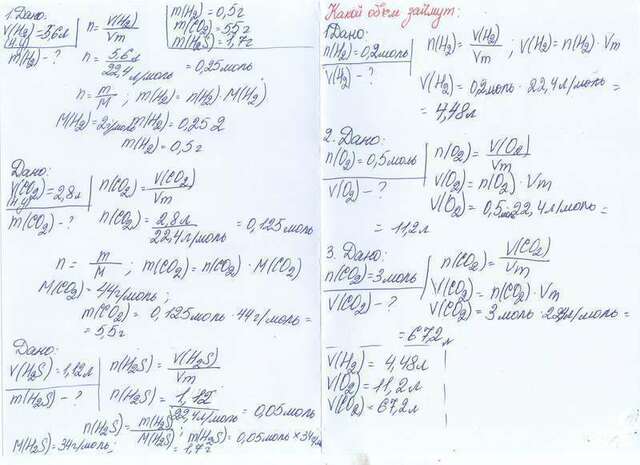 1. Дано:
V(H2)=5,6л
(н.у)
m(H2) - ?
n = V(H2)/Vm
n = 5,6/22,4л/моль = 0,25моль
n = m/M ; m(H2) = n(H2) · M(H2)
M(H2) = 2г/моль m(H2) = 0,25 2
m(H2) = 0,5г
m(H2) = 0,5г
m(CO2) = 5,5г
m(H2S) = 1,7г
Дано:
V(CO2) = 2,8л
(н.у)
m(CO2) - ?
n(CO2) = V(CO2)/Vm
n(CO2) = 2,8л/22,4л/моль = 0,125моль
n = m/M ; m(CO2) = n(CO2) · M(CO2)
M(CO2) = 44г/моль ;
m(CO2) = 0,125моль · 44г/моль =
= 5,5г
Дано:
V(H2S) = 1,12л
m(H2S) - ?
n(H2S) = V(H2S)/Vm
n(H2S) = 1,12/22,4л/моль = 0,05моль
n(H2S) = m(H2S)/M(H2S) ; m(H2S) = 0,05моль × 34г/м
M(H2S) = 34г/моль ;
= 1,7г
Какой объем займут:
1Дано:
n(H2) = 0,2моль
V(H2) - ?
n(H2) = V(H2)/Vm ; V(H2) = n(H2) · Vm
V(H2) = 0,2моль · 22,4л/моль =
= 4,48л
2. Дано:
n(O2) = 0,5моль
V(O2) - ?
n(O2) = V(O2)/Vm
V(O2) = n(O2) · Vm
V(O2) = 0,5моль · 22,4л/моль =
= 11,2л
3. Дано:
n(CO2) = 3моль
V(CO2) - ?
n(CO2) = V(CO2)/Vm
V(CO2) = n(CO2) · Vm
V(CO2) = 3моль · 22,4л/моль =
= 67,2л
V(H2) = 4,48л
V(O2) = 11,2л
V(CO2) = 67,2л